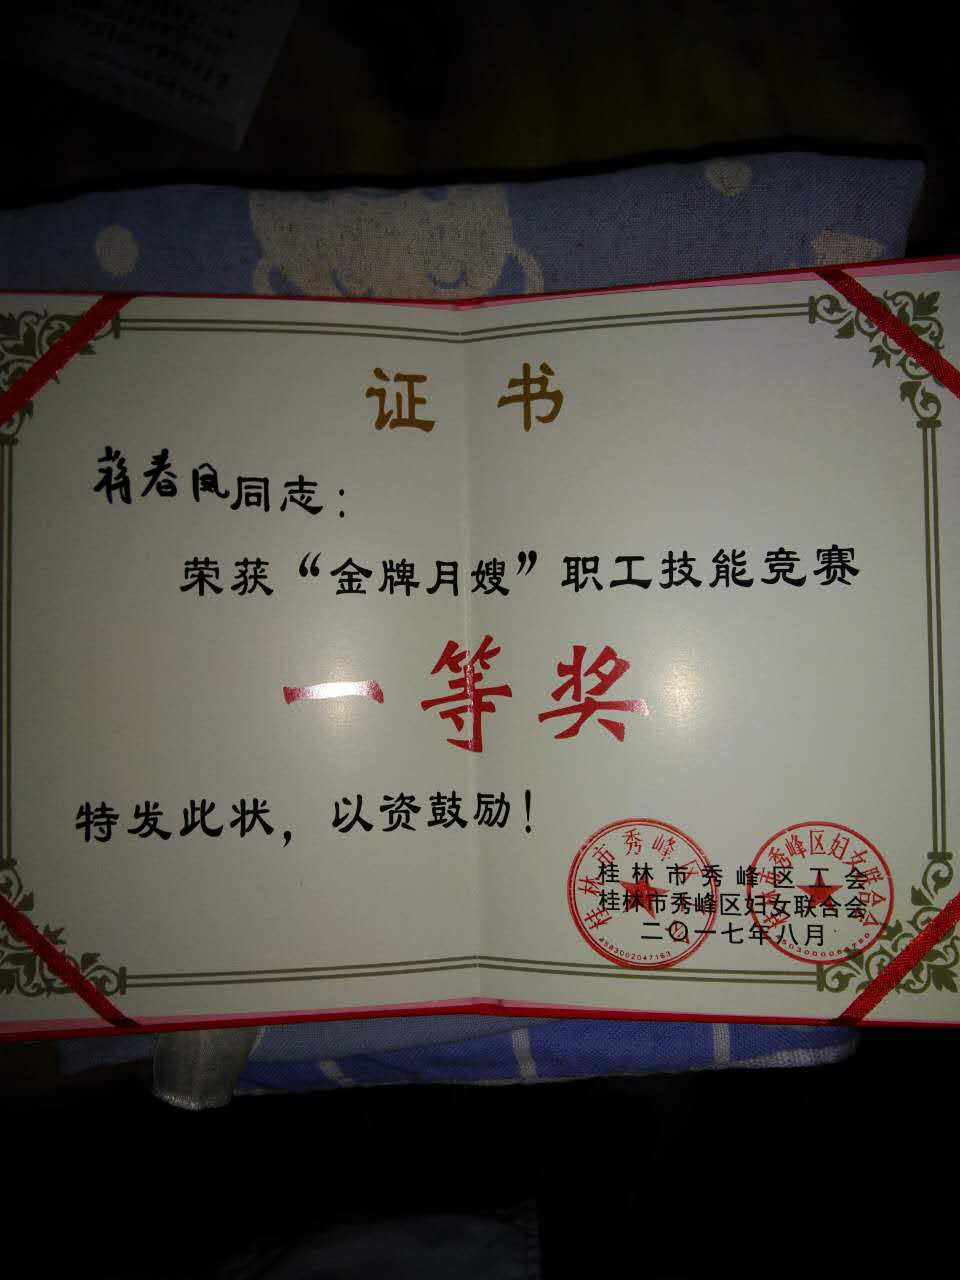 证书
蒋春凤同志：
荣获“金牌月嫂”职工技能竞赛
一等奖
特发此状，以资鼓励！
桂林市秀峰区工会
桂林市秀峰区妇女联合会
二〇一七年八月
桂林市秀峰区
4503002047163
桂林市秀峰区妇女联合会